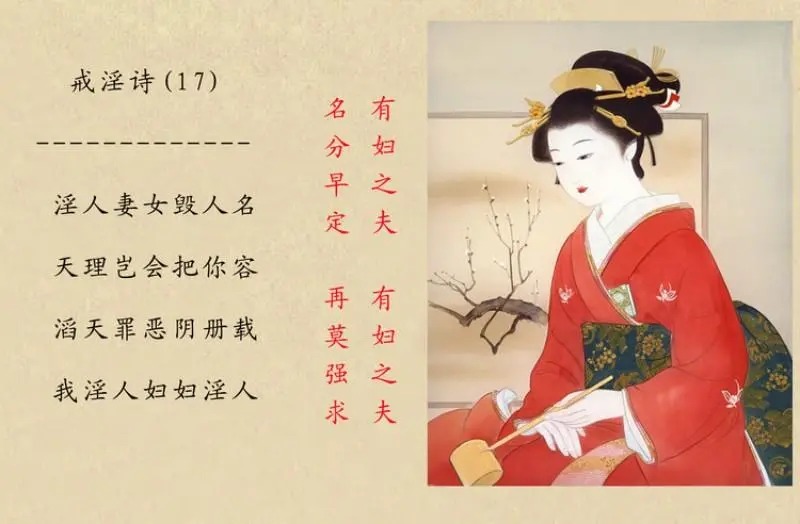 戒淫诗(17)
-------------
淫人妻女毁人名
天理岂会把你容
滔天罪恶阴册载
我淫人妇妇淫人
有妇之夫
名分早定
有妇之夫
再莫强求